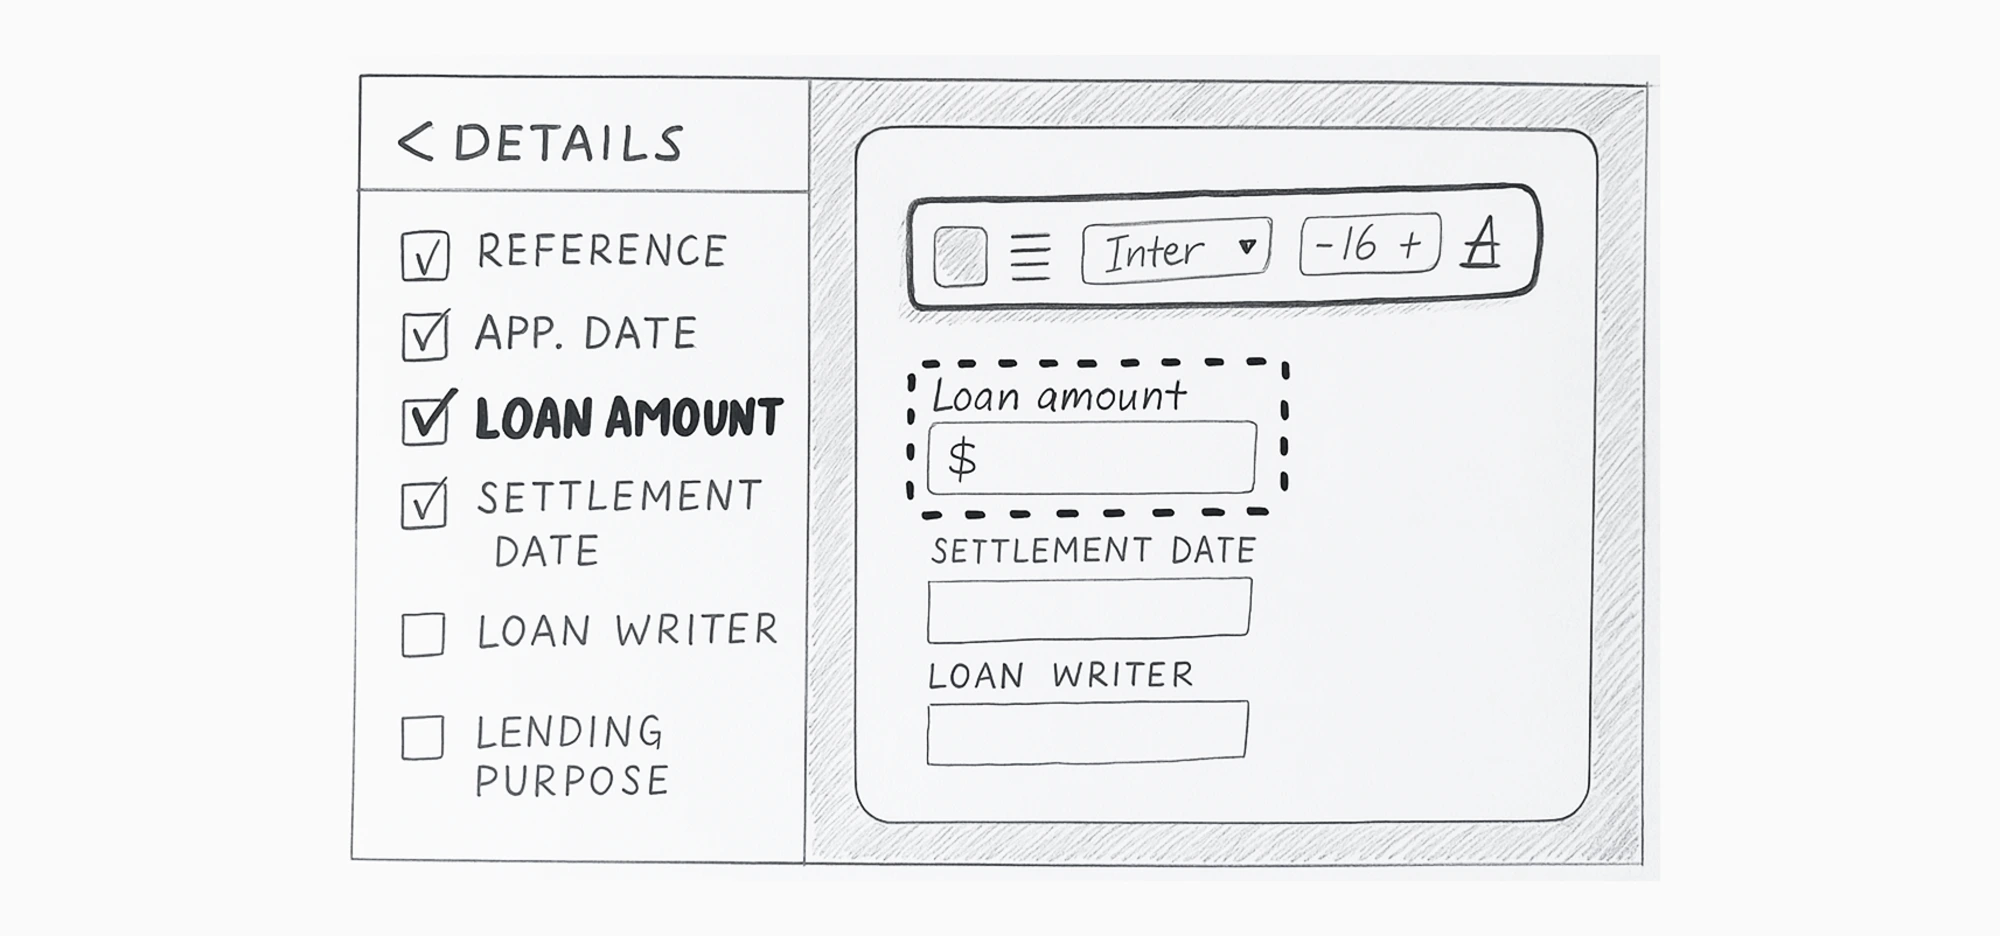 < DETAILS
REFERENCE
APP. DATE
LOAN AMOUNT
SETTLEMENT
DATE
LOAN WRITER
LENDING
PURPOSE
Inter
-16 +
A
Loan amount
$
SETTLEMENT DATE
LOAN WRITER